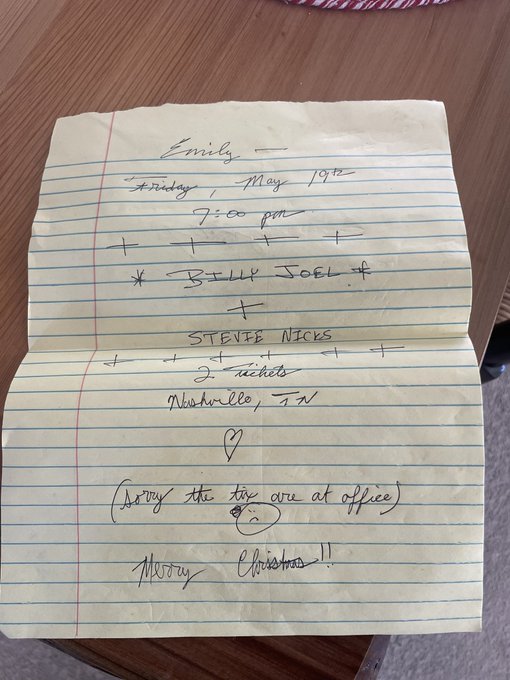 Emily —
Friday, May 19th
7:00 pm
+ + + +
* BILLY JOEL *
+
STEVIE NICKS
+ + + + + +
2 Tickets
Nashville, TN
♡
(Sorry the tix are at office)
☹
Merry Christmas!!